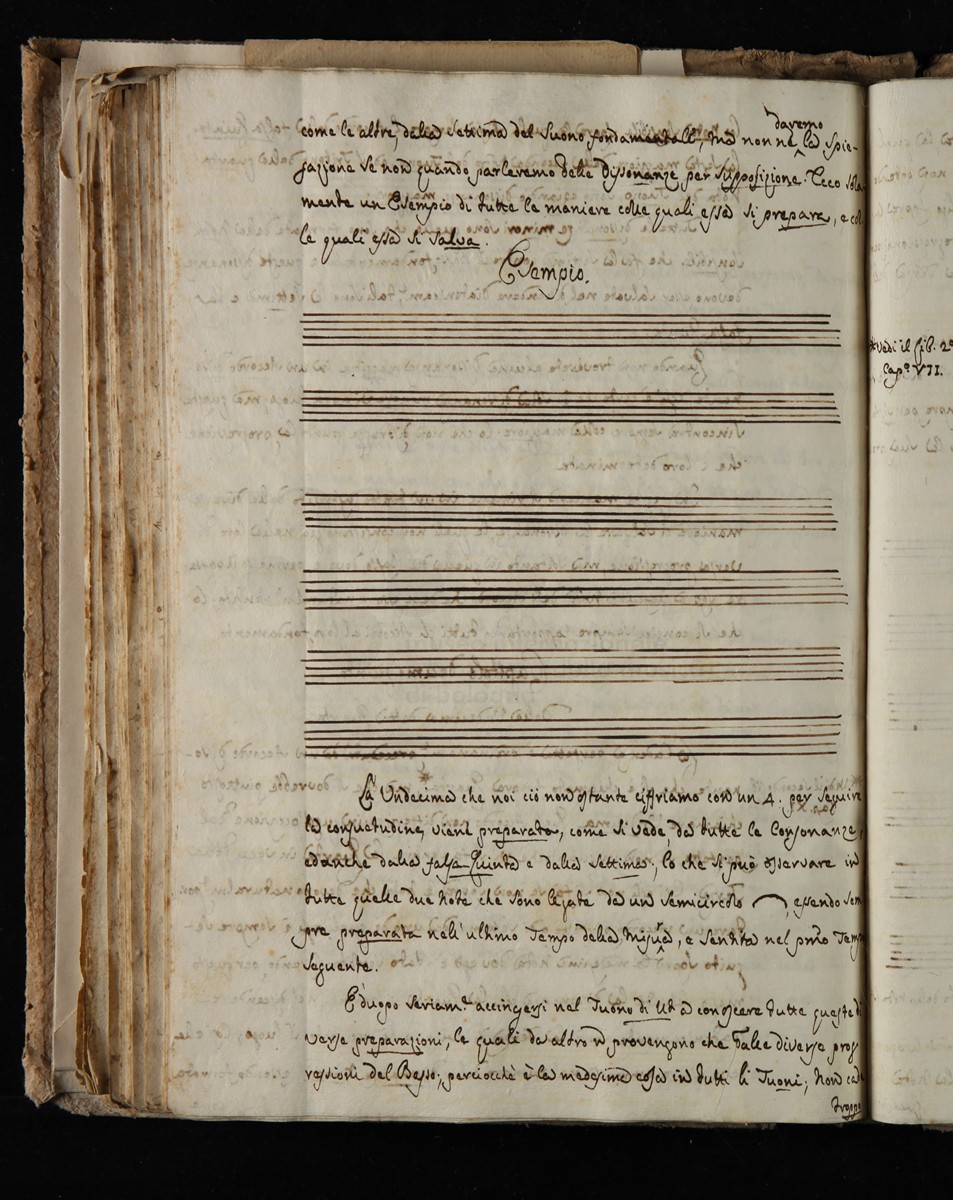 daremo
come le altre, dalla settima del suono fondamentale, ma non ne ‸ la spie-
gazione se non quando parleremo delle dissonanze per supposizione. Ecco sola
mente un Esempio di tutte le maniere colle quali essa si prepara, e col
le quali essa si salva.
Esempio.
Vedi il Lib. 2º
Cap.º VII.
La Undecima che noi ciò non ostante ciffriamo con un 4. per seguire
la consuetudine, viene preparata, come si vede, da tutte le Consonanze,
ed anche dalla falsa Quinta e dalla settima; lo che si può osservare in
tutte quelle due note che sono legate da un semicircolo ⁀, essendo sem
pre preparata nell'ultimo Tempo della Misura, e sentita nel pmo Temp
seguente.
È duopo seriamte accingersi nel Tuono di Ut a conoscere tutte queste di
verse preparazioni, le quali da altro provengono che dalle diverse prog
ressioni del Basso; perciocchè è la medesima cosa in tutti li Tuoni; Non ca
troppo